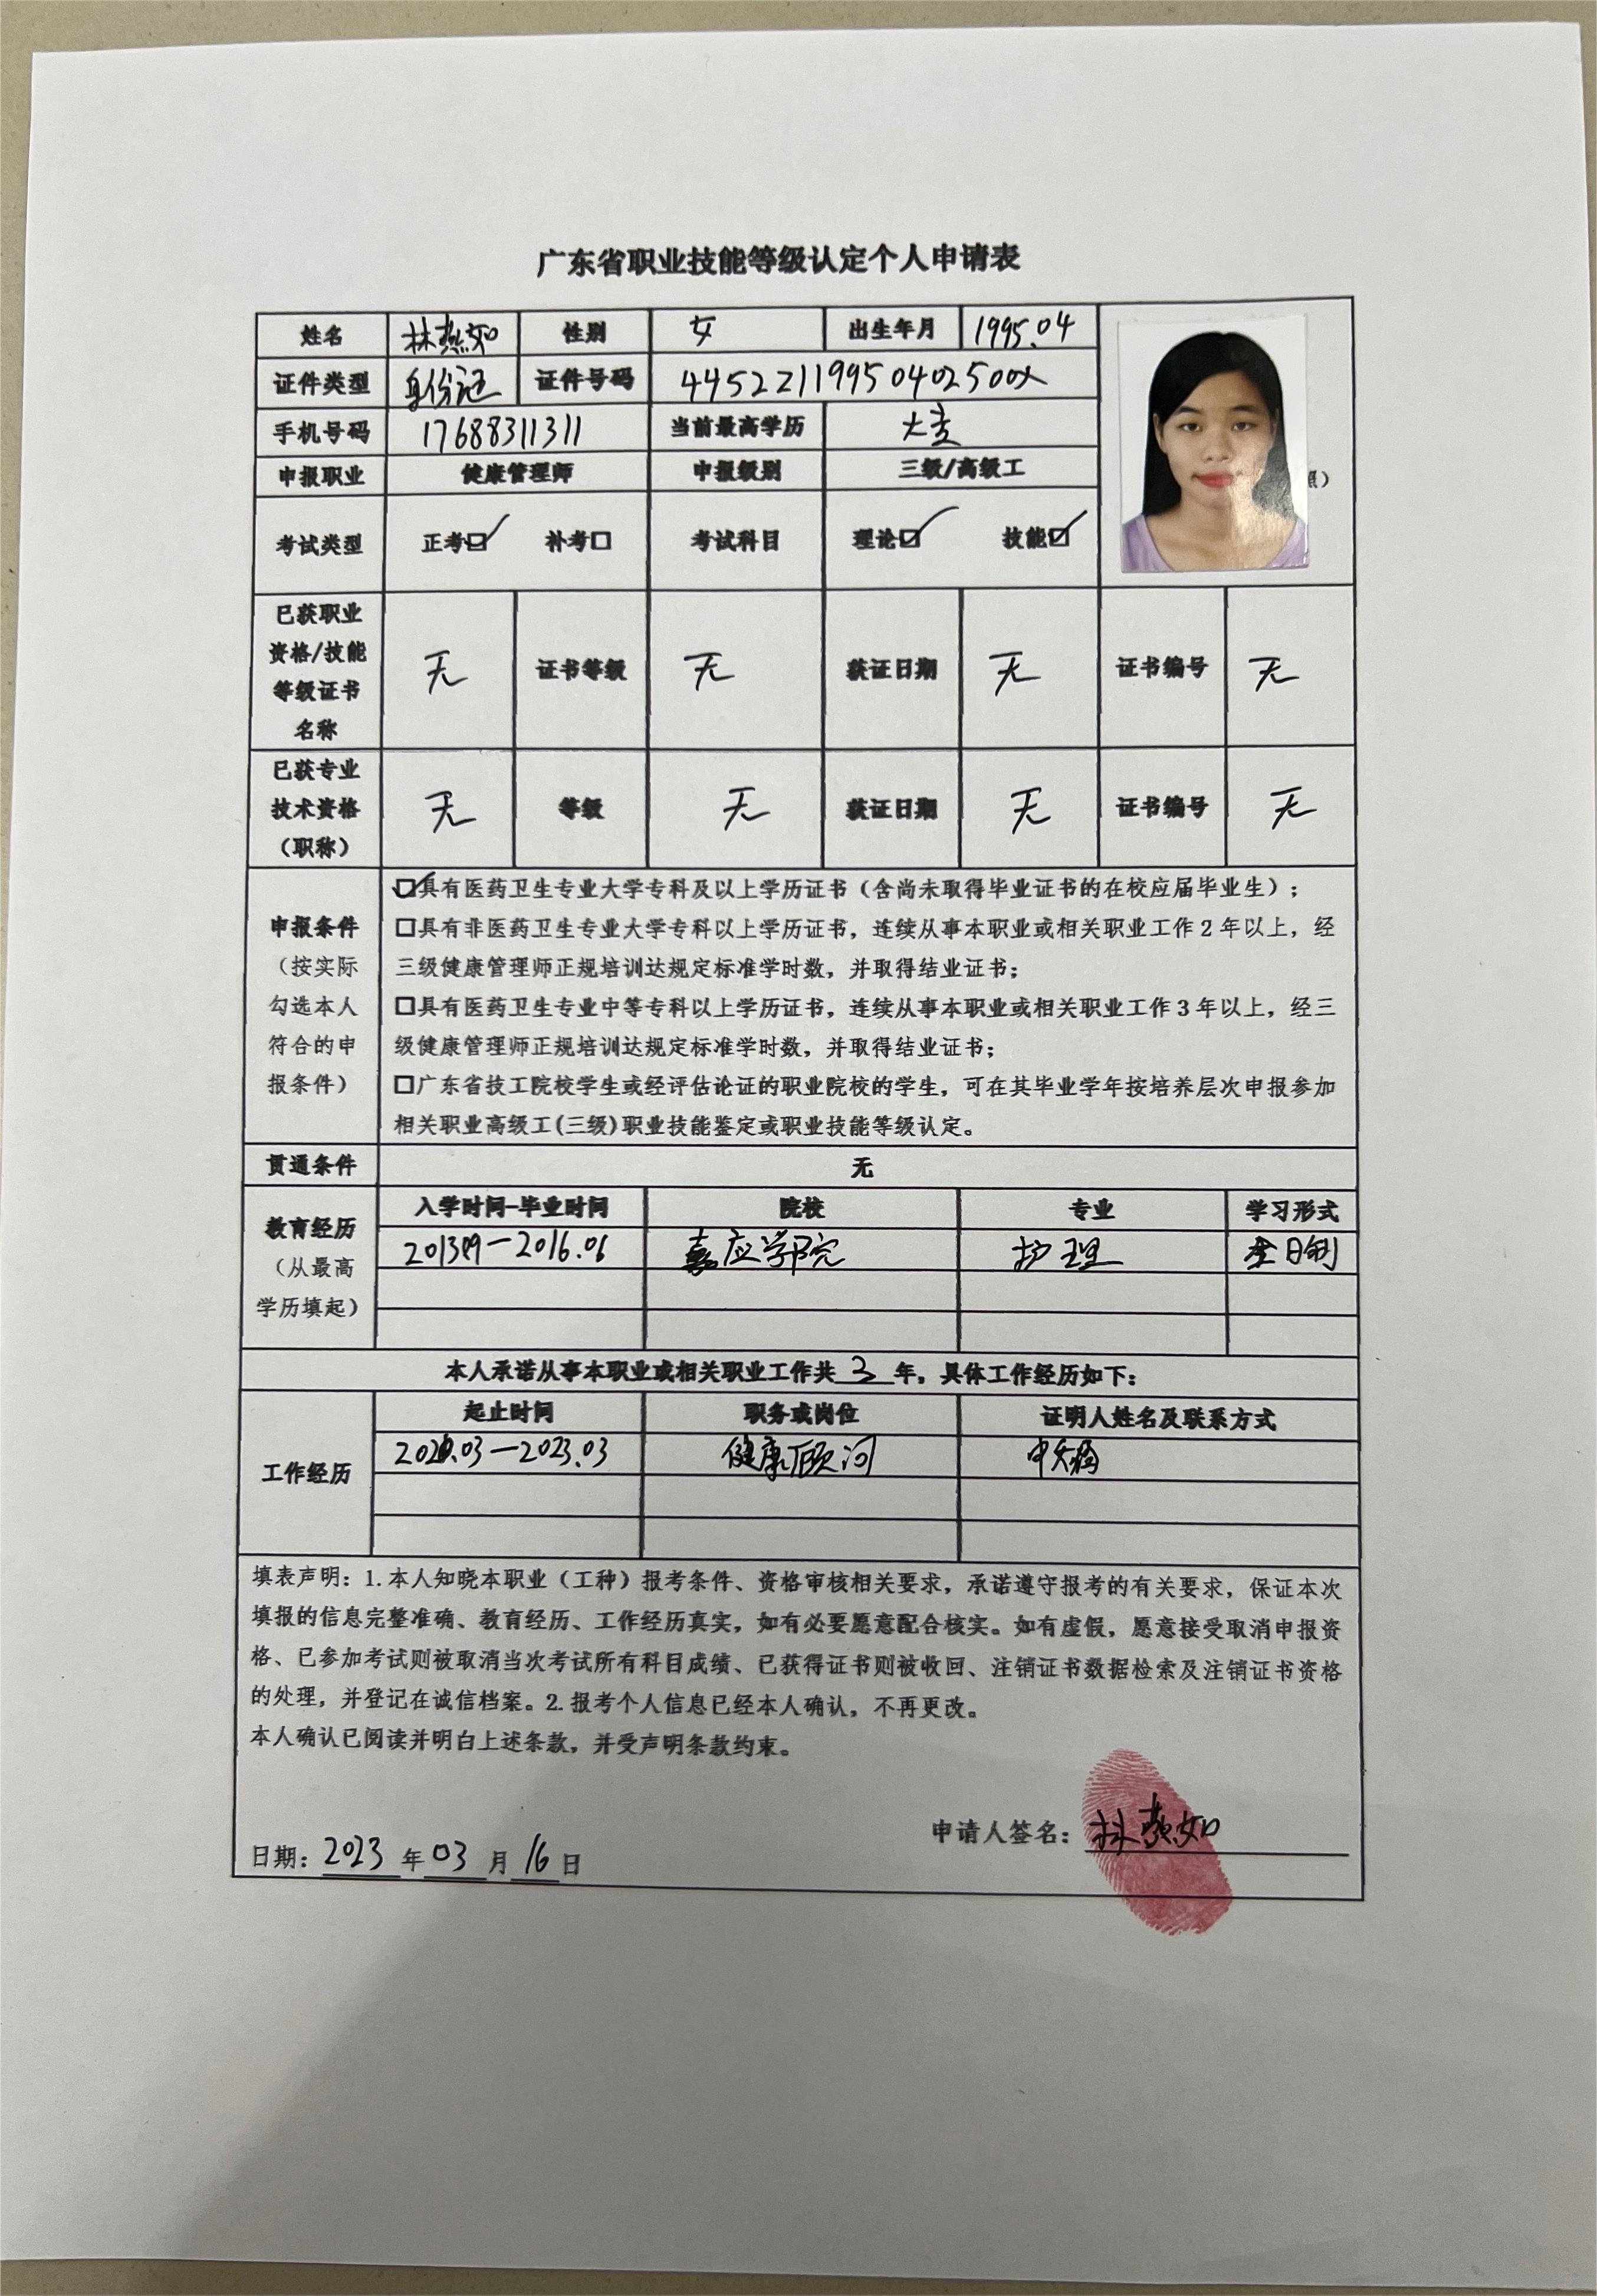 广东省职业技能等级认定个人申请表
姓名 林燕如 性别 女 出生年月 1995.04
证件类型 身份证 证件号码 44522119950402500X
手机号码 17688311311 当前最高学历 大专
照）
申报职业 健康管理师 申报级别 三级/高级工
考试类型 正考☑ 补考□ 考试科目 理论☑ 技能☑
已获职业资格/技能等级证书名称 无 证书等级 无 获证日期 无 证书编号 无
已获专业技术资格（职称） 无 等级 无 获证日期 无 证书编号 无
申报条件（按实际勾选本人符合的申报条件）
☑具有医药卫生专业大学专科及以上学历证书（含尚未取得毕业证书的在校应届毕业生）；
□具有非医药卫生专业大学专科以上学历证书，连续从事本职业或相关职业工作2年以上，经
三级健康管理师正规培训达规定标准学时数，并取得结业证书；
□具有医药卫生专业中等专科以上学历证书，连续从事本职业或相关职业工作3年以上，经三
级健康管理师正规培训达规定标准学时数，并取得结业证书；
□广东省技工院校学生或经评估论证的职业院校的学生，可在其毕业学年按培养层次申报参加
相关职业高级工(三级)职业技能鉴定或职业技能等级认定。
贯通条件 无
教育经历（从最高学历填起）
入学时间-毕业时间 院校 专业 学习形式
201309-2016.06 嘉应学院 护理 全日制
本人承诺从事本职业或相关职业工作共 3 年，具体工作经历如下：
工作经历
起止时间 职务或岗位 证明人姓名及联系方式
2020.03-2023.03 健康顾问
填表声明：1.本人知晓本职业（工种）报考条件、资格审核相关要求，承诺遵守报考的有关要求，保证本次
填报的信息完整准确、教育经历、工作经历真实，如有必要愿意配合核实。如有虚假，愿意接受取消申报资
格、已参加考试则被取消当次考试所有科目成绩、已获得证书则被收回、注销证书数据检索及注销证书资格
的处理，并登记在诚信档案。2.报考个人信息已经本人确认，不再更改。
本人确认已阅读并明白上述条款，并受声明条款约束。
申请人签名：林燕如
日期：2023 年 03 月 16 日